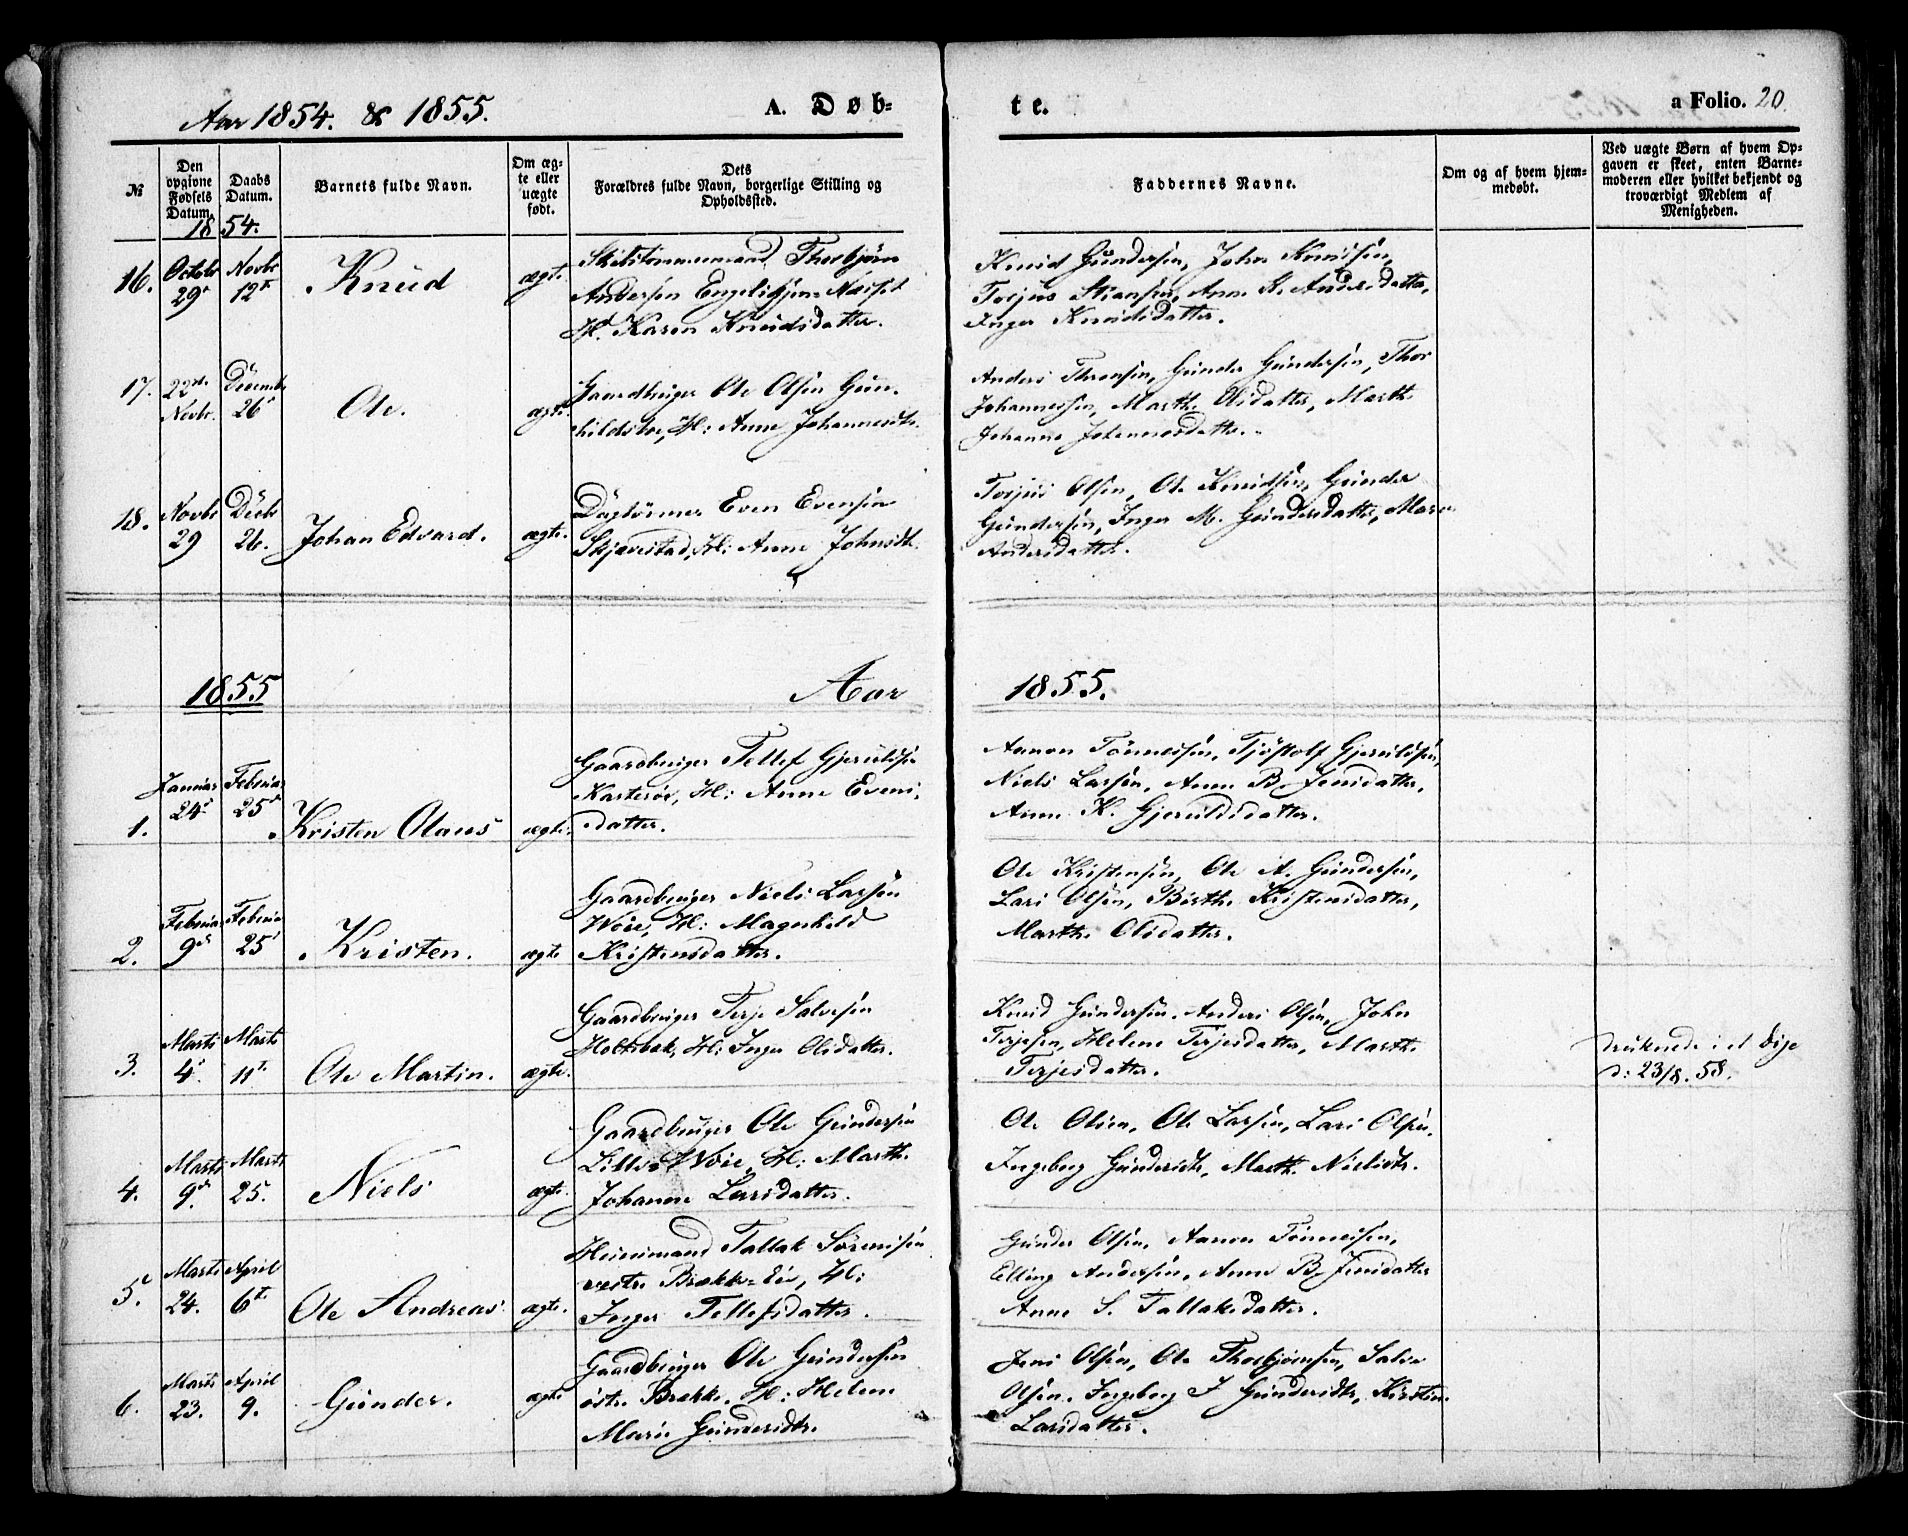 Aar 1854. & 1855.
A. Døb-
te.
a Folio. 20.
No
Den opgivne Fødsels Datum.
Daabs Datum.
Barnets fulde Navn.
Om ægte eller uægte født.
Dets Forældres fulde Navn, borgerlige Stilling og Opholdssted.
Faddernes Navne.
Om og af hvem hjemmedøbt.
Ved uægte Børn af hvem Opgaven er skeet, enten Barnemoderen eller hvilket bekjendt og troværdigt Medlem af Menigheden.
1854.
16.
Octobr 29de
Novbr 12te
Knud
ægte
Thorbjørn
Andersen
H. Karen Knudsdatter.
Knud Gundersen, John Knudsen,
Torjus Stiansen, Anne K. Andersdatter,
Inger Knudsdatter.
17.
22de Novbr.
Decembr 26de
Ole.
ægte
Gaardbruger Ole Olsen Gun-
hildsboe, H: Anne Johannesdtr.
Anders Thronsen, Gunder Gundersen, Thor
Johannessen, Marthe Olsdatter, Marthe
Johanne Johannesdatter.
18.
Novbr 29
Decbr 26.
Johan Edvard.
ægte.
Even Evensen
Skjævestad, H: Anne Johnsdtr.
Torjus Olsen, Ole Knudsen, Gunder
Gundersen, Inger M. Gundersdatter, Maren
Andersdatter.
1855
Aar
1855.
1.
Januar 24de
Februar 25de
Kristen Olaus
ægte.
Gaardbruger Tellef Gjeruldsen
H: Anne Evens-
datter.
Aanon Tønnessen, Tjøstolf Gjeruldsen,
Niels Larsen, Anne B. Jensdatter,
Anne K. Gjeruldsdatter.
2.
Februar 9de
Februar 25de
Kristen.
ægte
Gaardbruger Niels Larsen
Woie, H: Magnhild
Kristensdatter.
Ole Kristensen, Ole A. Gundersen,
Lars Olsen, Birthe Kristensdatter,
Marthe Olsdatter.
3.
Marts 4de
Marts 11te
Ole Martin.
ægte.
Gaardbruger Terje Salvesen
Holtebek, H: Inger Olsdatter.
Knud Gundersen, Anders Olsen, John
Terjesen, Helene Terjesdatter, Marthe
Terjesdatter.
druknede i et Dige
d: 23/8. 58.
4.
Marts 9de
Marts 25.
Niels
ægte.
Gaardbruger Ole Gundersen
Lille Woie, H: Marthe
Johanne Larsdatter.
Ole Olsen, Ole Larsen, Lars Olsen,
Ingeborg Gundersdtr, Marthe Nielsdtr.
5.
Marts 24.
April 6te
Ole Andreas
ægte.
Huusmand Tallak Sørensen
vestre Brække-Eie, H:
Inger Tellefsdatter.
Gunder Olsen, Aanon Tønnessen,
Elling Andersen, Anne B. Jensdatter
Anne S. Tallaksdatter.
6.
Marts 23.
April 9.
Gunder.
ægte
Gaardbruger Ole Gundersen
østre Brække, H: Helene
Marie Gundersdtr.
Jens Olsen, Ole Thorbjørnsen, Salve
Olsen, Ingeborg J Gundersdtr, Kirstine
Larsdatter.